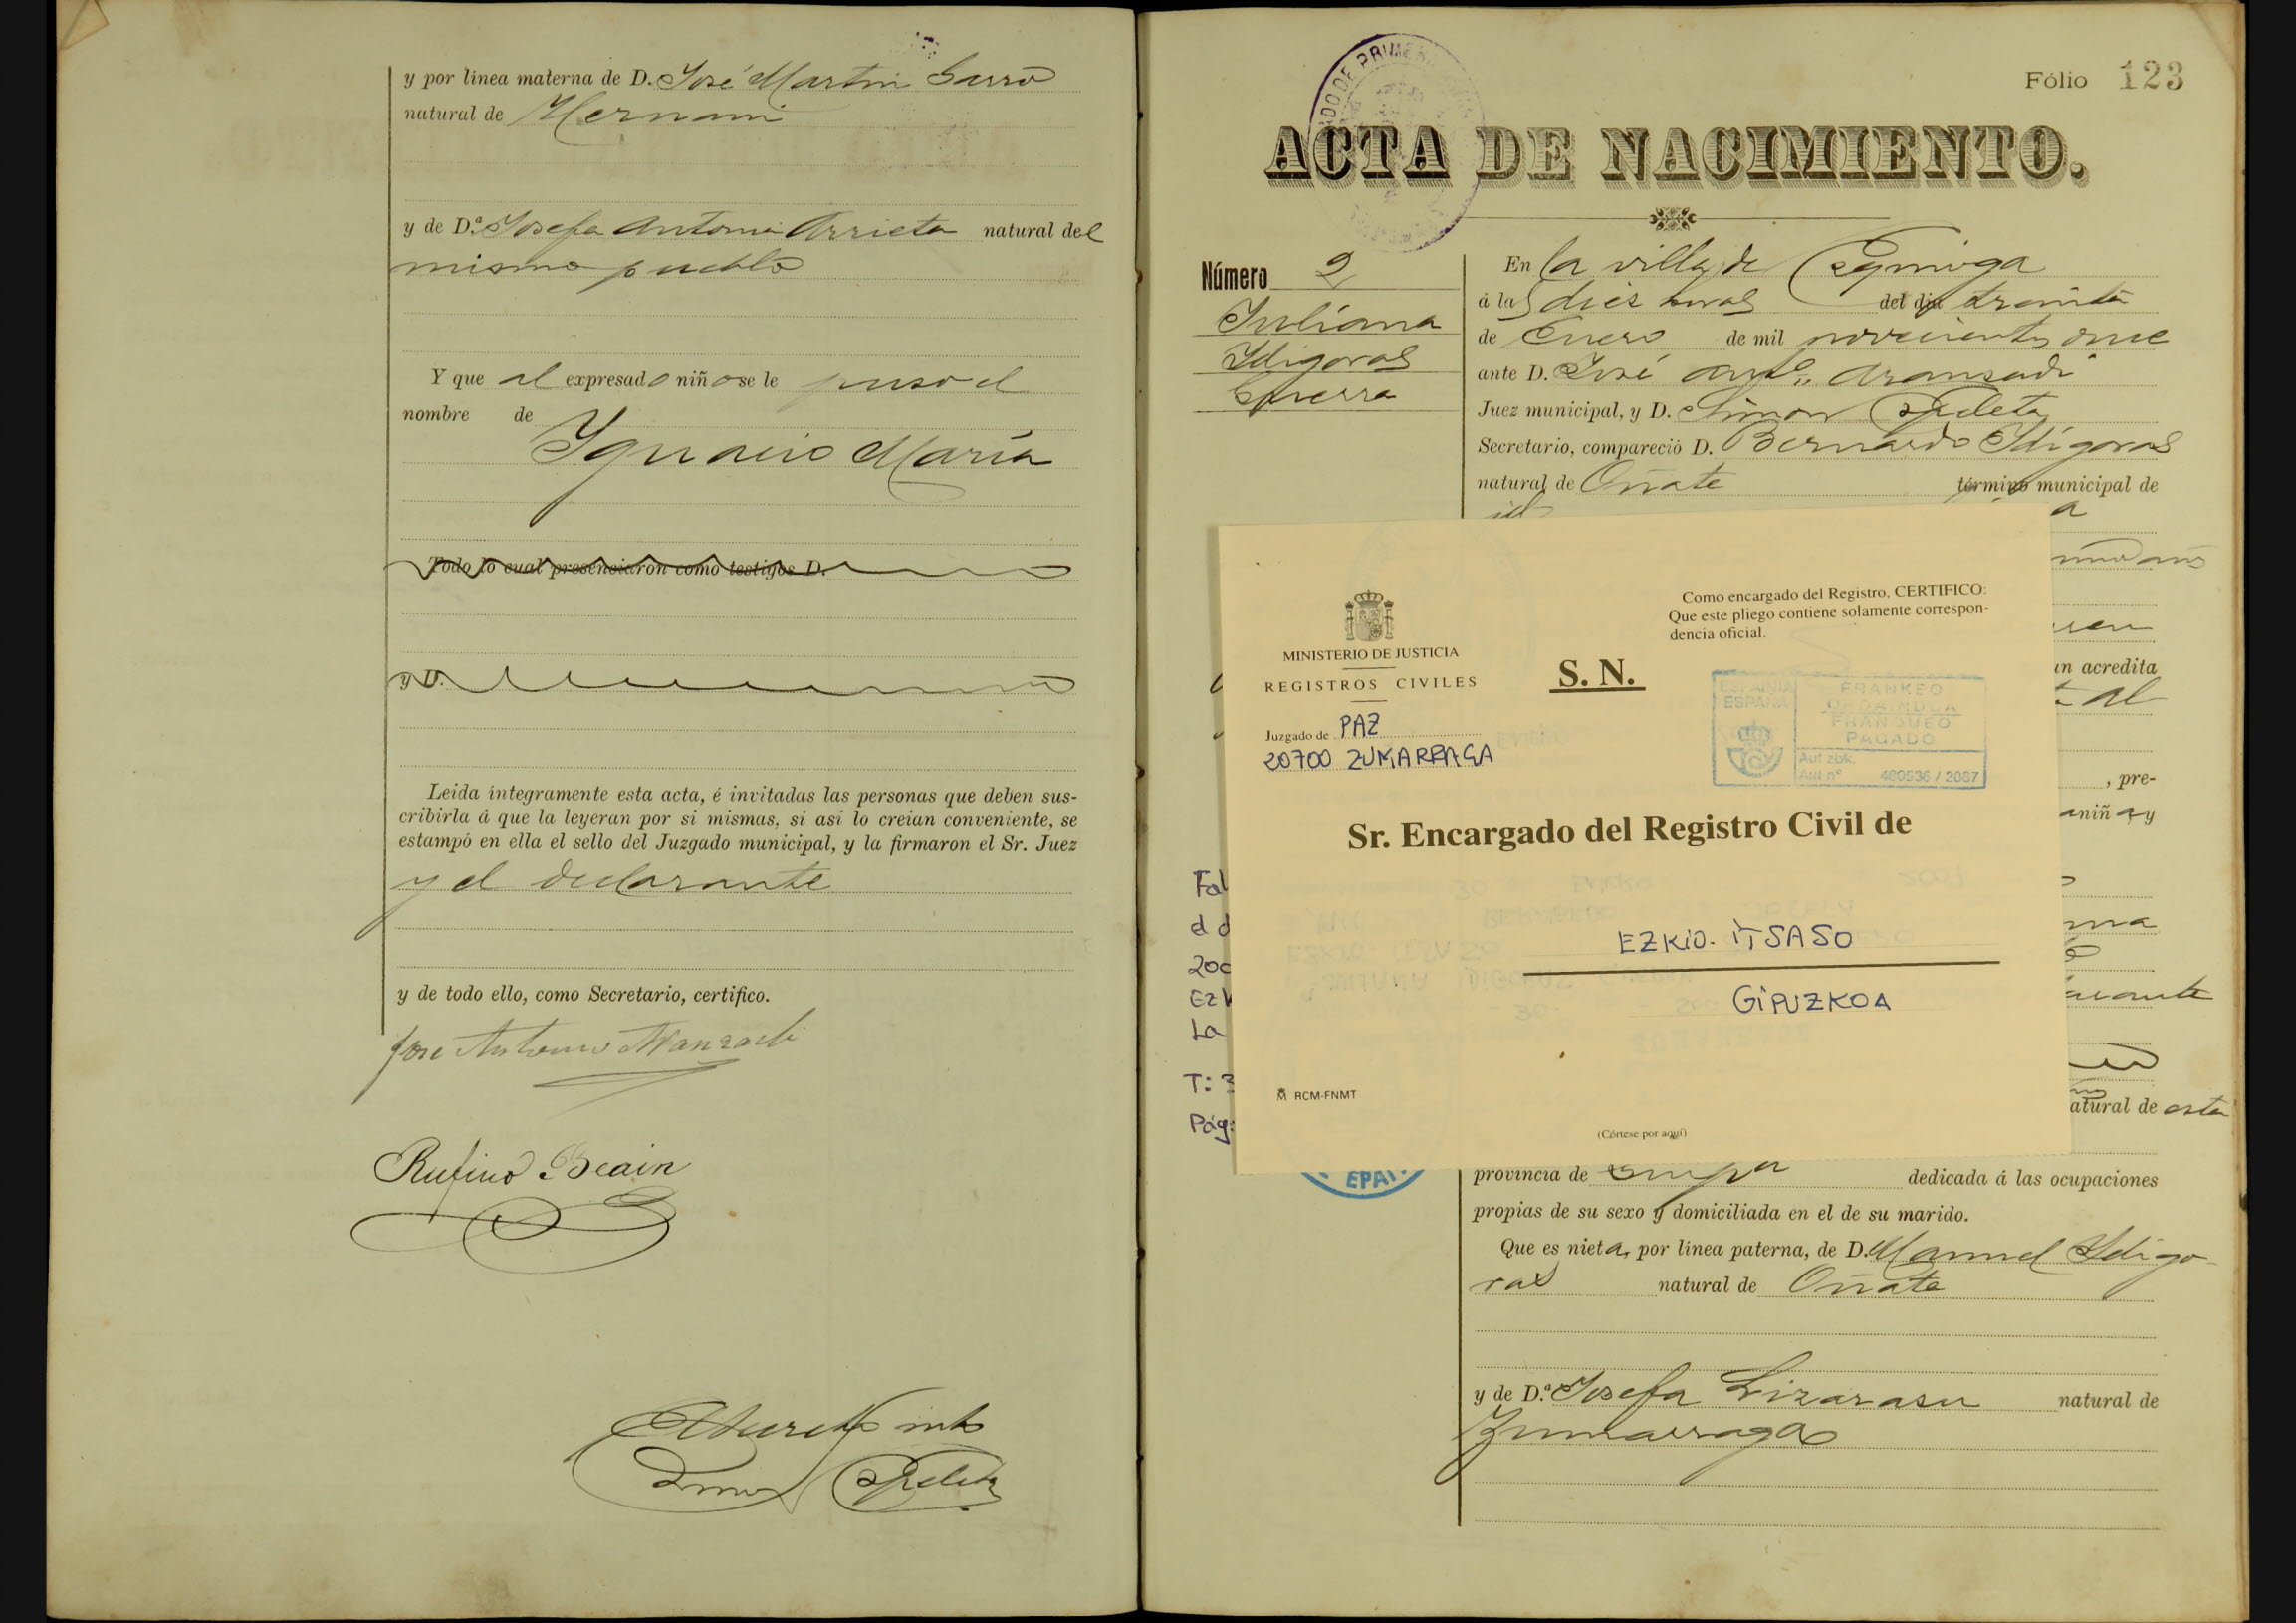 y por línea materna de D. José Martin Sarro
natural de Hernani
y de D.ª Josefa Antonia Arrieta natural del
mismo pueblo
Y que al expresado niño se le puso el
nombre de
Ygnacio María
Todo lo cual presenciaron como testigos D.
y D.
Leida íntegramente esta acta, é invitadas las personas que deben sus-
cribirla á que la leyeran por si mismas, si asi lo creian conveniente, se
estampó en ella el sello del Juzgado municipal, y la firmaron el Sr. Juez
y el declarante
y de todo ello, como Secretario, certifico.
José Antonio Aranzadi
Rufino Beain
Fólio 123
ACTA DE NACIMIENTO.
Número 2
Juliana
Idigoras
Guerra
En la villa de Ezquioga
á las diez horas del dia treinta
de Enero de mil novecientos once
ante D. José Antº Aranzadi
Juez municipal, y D. Simon
Secretario, compareció D. Bernardo Idigoras
natural de Oñate término municipal de
id
a
an acredita
al
, pre-
a niña y
MINISTERIO DE JUSTICIA
REGISTROS CIVILES
Juzgado de PAZ
20700 ZUMARRAGA
S. N.
Como encargado del Registro, CERTIFICO:
Que este pliego contiene solamente correspon-
dencia oficial.
ESPAINIA
ESPAÑA
FRANKEO
ORDAINDUA
FRANQUEO
PAGADO
Aut zbk.
Aut nº 480536 / 2087
Sr. Encargado del Registro Civil de
EZKIO-ITSASO
GIPUZKOA
RCM-FNMT
(Córtese por aquí)
Fal
el d
200
Ezk
La
T: 3
Pág:
EPAI
atural de esta
provincia de Guipª dedicada á las ocupaciones
propias de su sexo y domiciliada en el de su marido.
Que es nieta, por línea paterna, de D. Manuel Idigo-
ras natural de Oñate
y de D.ª Josefa Lizarasu natural de
Zumarraga